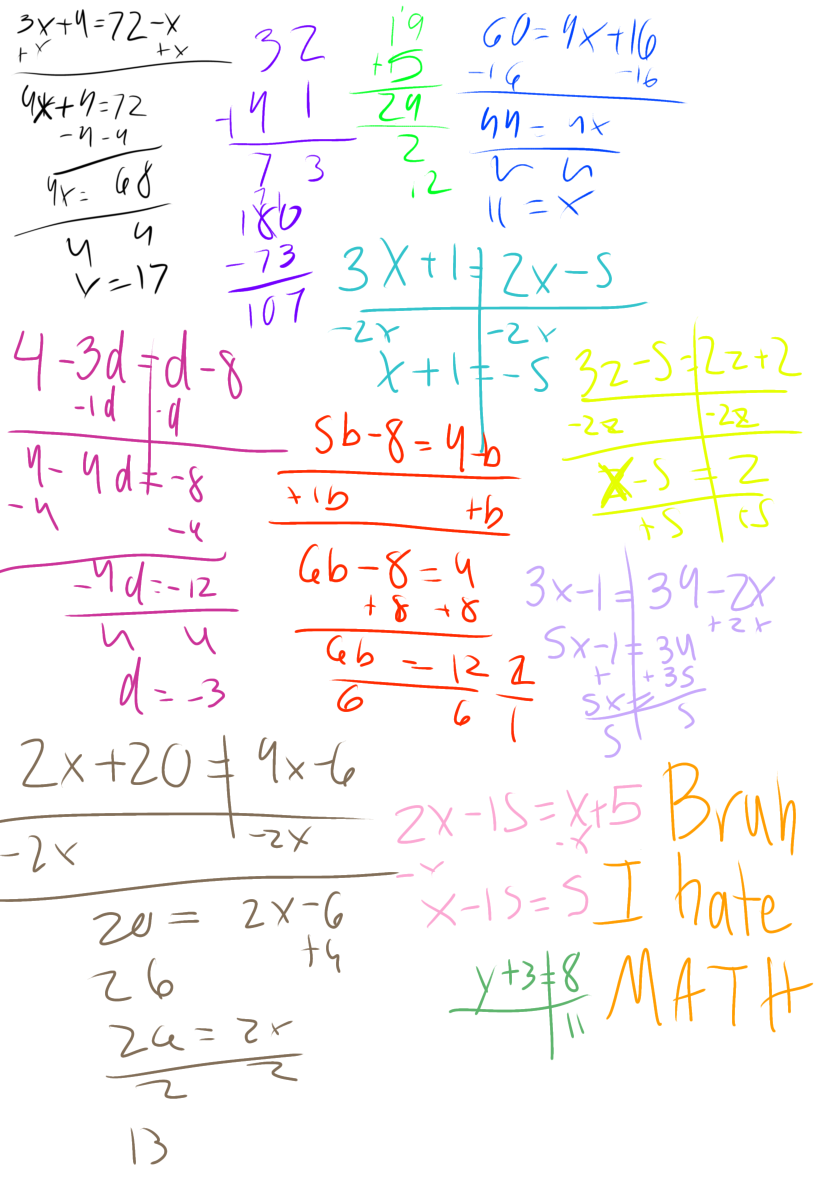 3x+4=72-x
+x +x
4x+4=72
-4 -4
4x= 68
4 4
x=17
32
+41
73
180
-73
107
19
+5
24
2
12
60=4x+16
-16 -16
44=4x
4 4
11=x
3x+1=2x-5
-2x -2x
x+1=-5
4-3d=d-8
-1d -d
4-4d=-8
-4 -4
-4d=-12
4 4
d=-3
5b-8=4-b
+1b +b
6b-8=4
+8 +8
6b=12 2
6 6 1
3z-5=2z+2
-2z -2z
x-5=2
+5 +5
3x-1=34-2x
+2x
5x-1=34
+ +35
5x=
5 5
2x+20=4x-6
-2x -2x
20=2x-6
+4
26
26=2x
2 2
13
2x-15=x+5
-x -x
x-15=5
y+3=8
11
Bruh
I hate
MATH